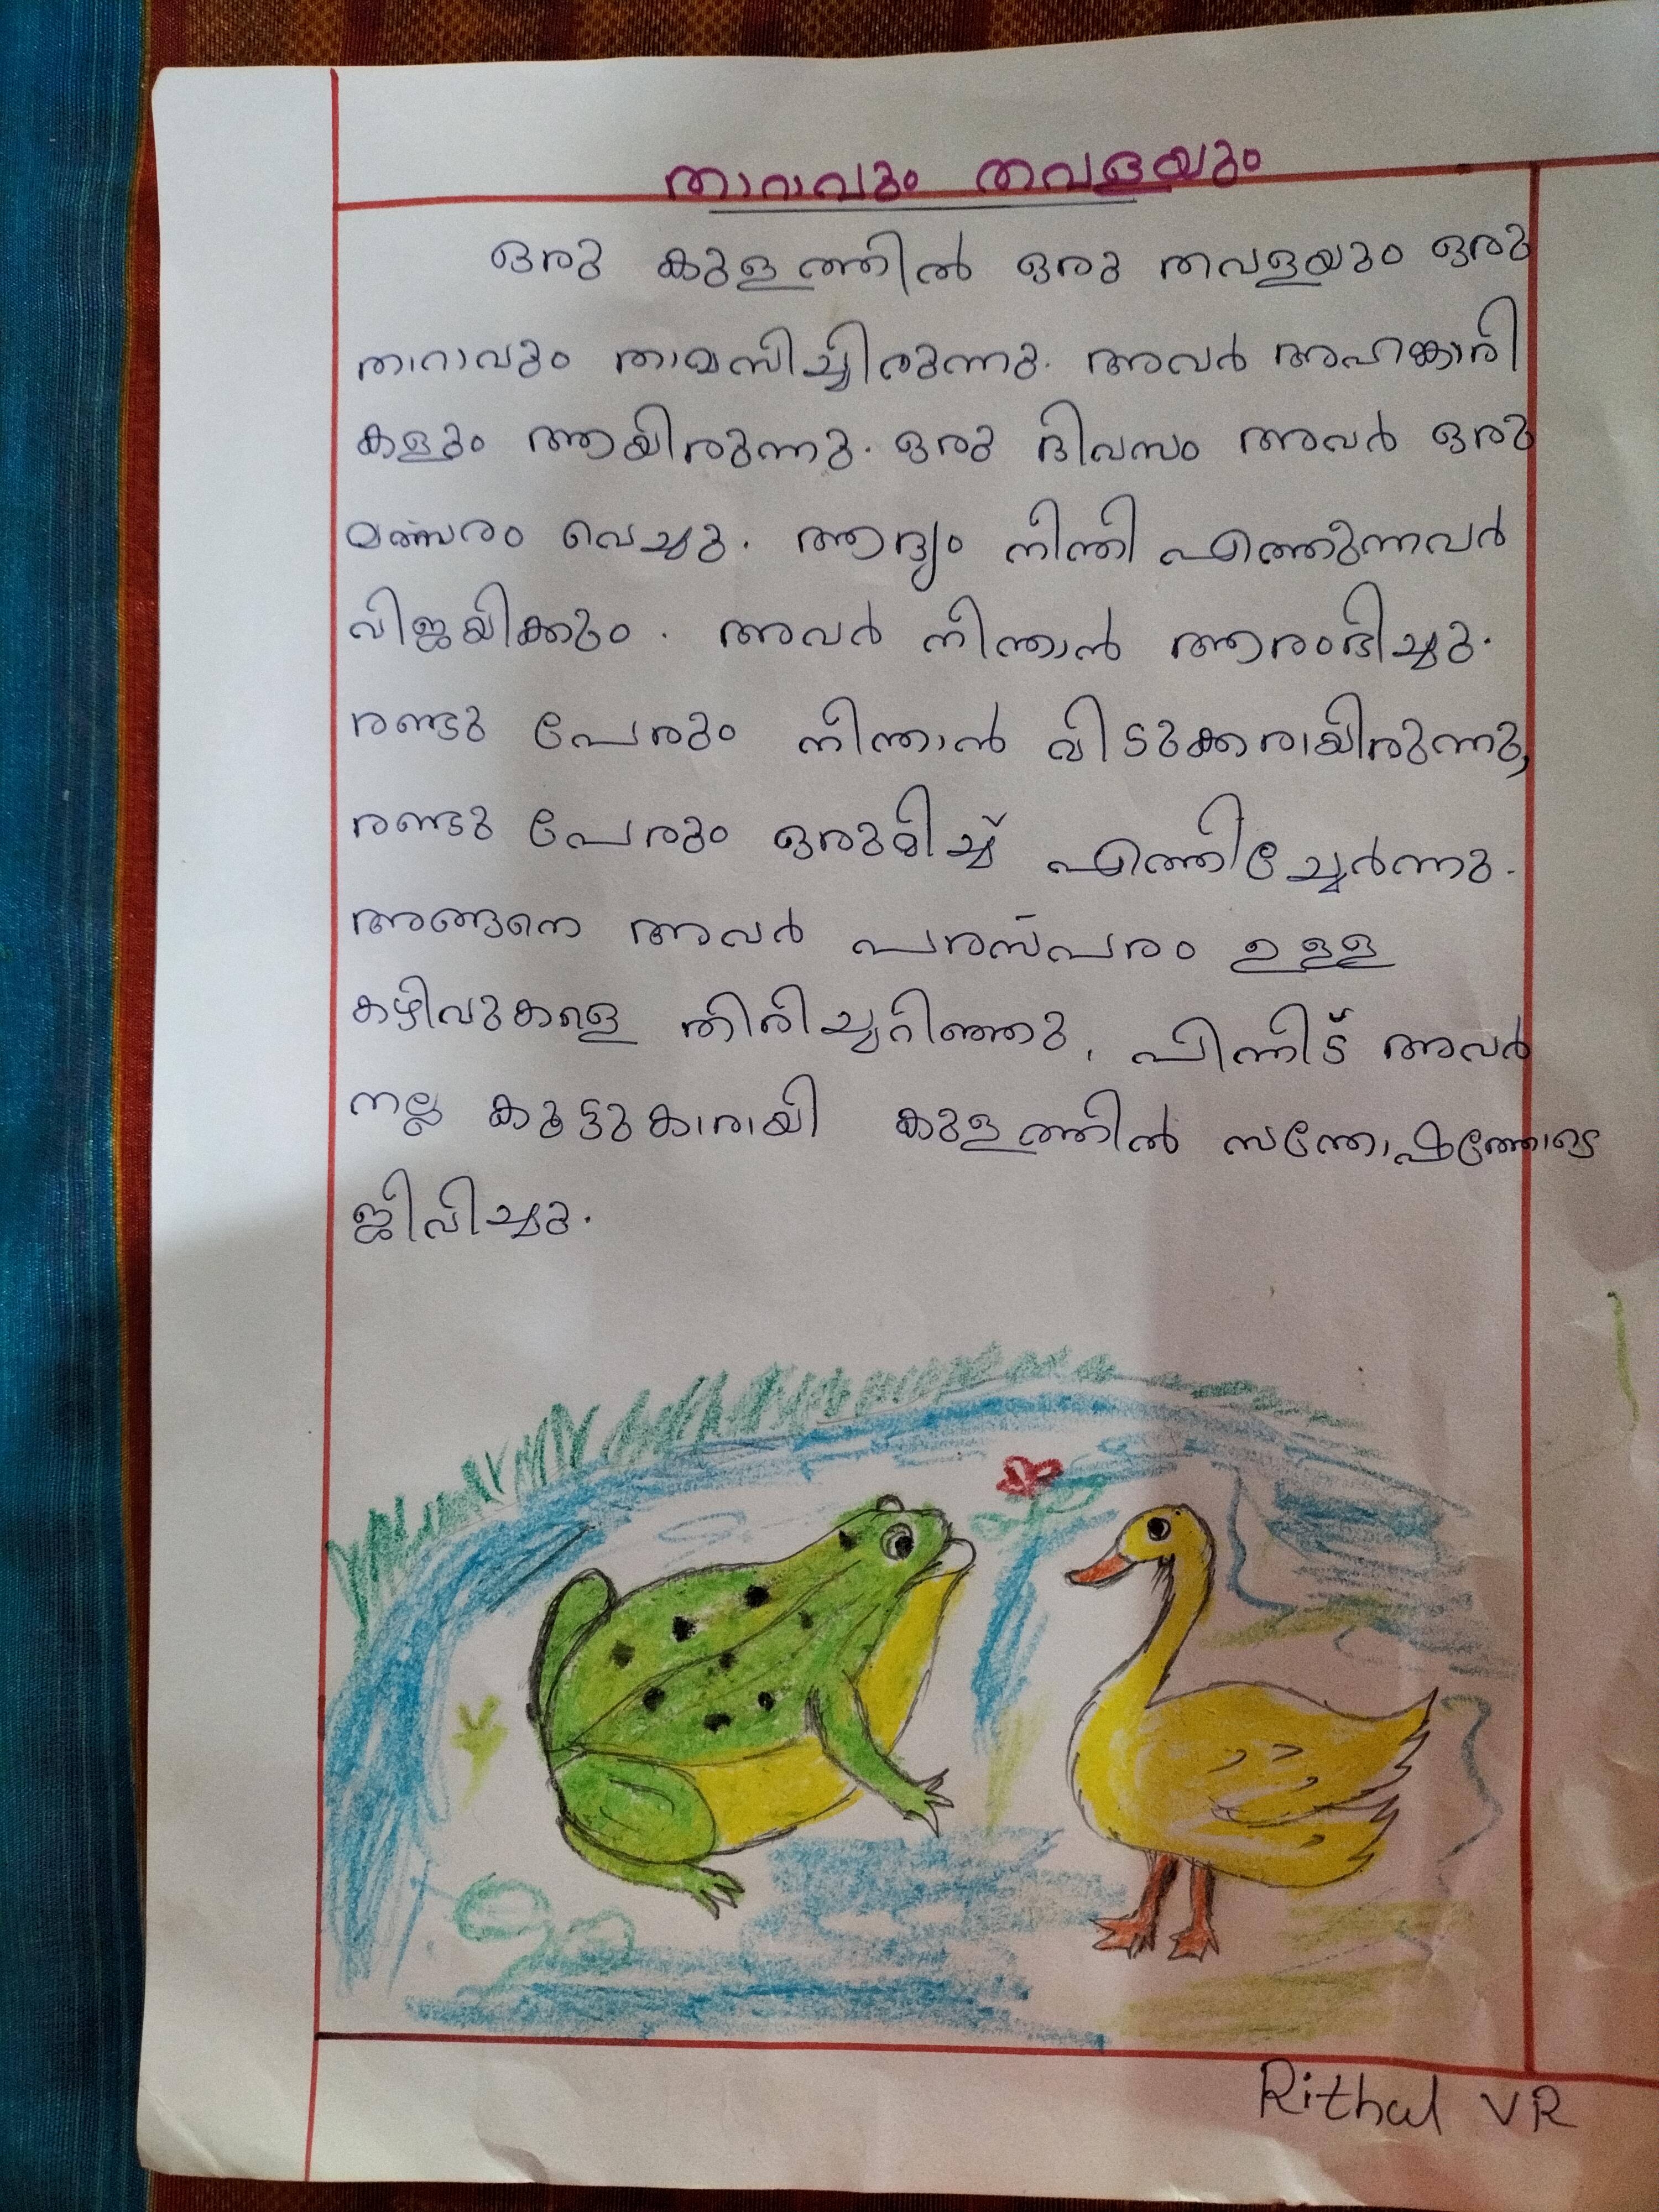 താറാവും തവളയും
ഒരു കുളത്തിൽ ഒരു തവളയും ഒരു
താറാവും താമസിച്ചിരുന്നു. അവർ അഹങ്കാരി
കളും ആയിരുന്നു. ഒരു ദിവസം അവർ ഒരു
മത്സരം വെച്ചു. ആദ്യം നീന്തി എത്തുന്നവർ
വിജയിക്കും. അവർ നീന്താൻ ആരംഭിച്ചു.
രണ്ടു പേരും നീന്താൻ മിടുക്കരായിരുന്നു,
രണ്ടു പേരും ഒരുമിച്ച് എത്തിച്ചേർന്നു.
അങ്ങനെ അവർ പരസ്പരം ഉള്ള
കഴിവുകളെ തിരിച്ചറിഞ്ഞു. പിന്നീട് അവർ
നല്ല കൂട്ടുകാരായി കുളത്തിൽ സന്തോഷത്തോടെ
ജീവിച്ചു.
Rithal VR